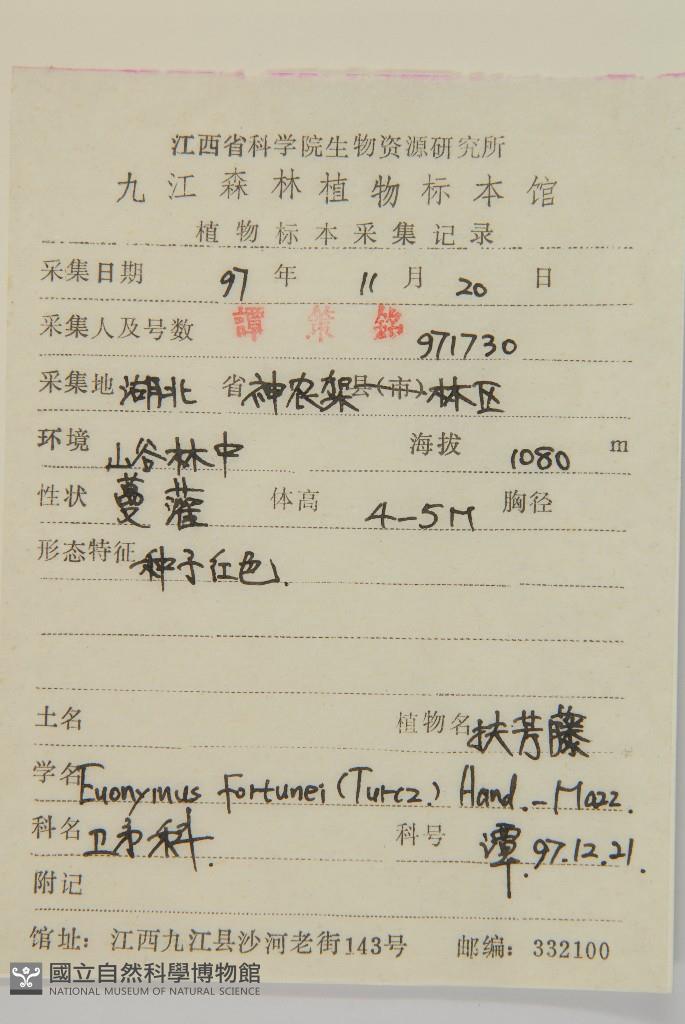 江西省科学院生物资源研究所
九江森林植物标本馆
植物标本采集记录
采集日期 97 年 11 月 20 日
采集人及号数 譚策銘 971730
采集地 湖北 省 神农架 县(市) 林区
环境 山谷林中 海拔 1080 m
性状 蔓灌 体高 4-5M 胸径
形态特征 种子红色.
土名 植物名 扶芳藤
学名 Euonymus fortunei (Turcz.) Hand.-Mazz.
科名 卫矛科. 科号 谭.97.12.21.
附记
馆址：江西九江县沙河老街143号 邮编：332100
國立自然科學博物館
NATIONAL MUSEUM OF NATURAL SCIENCE